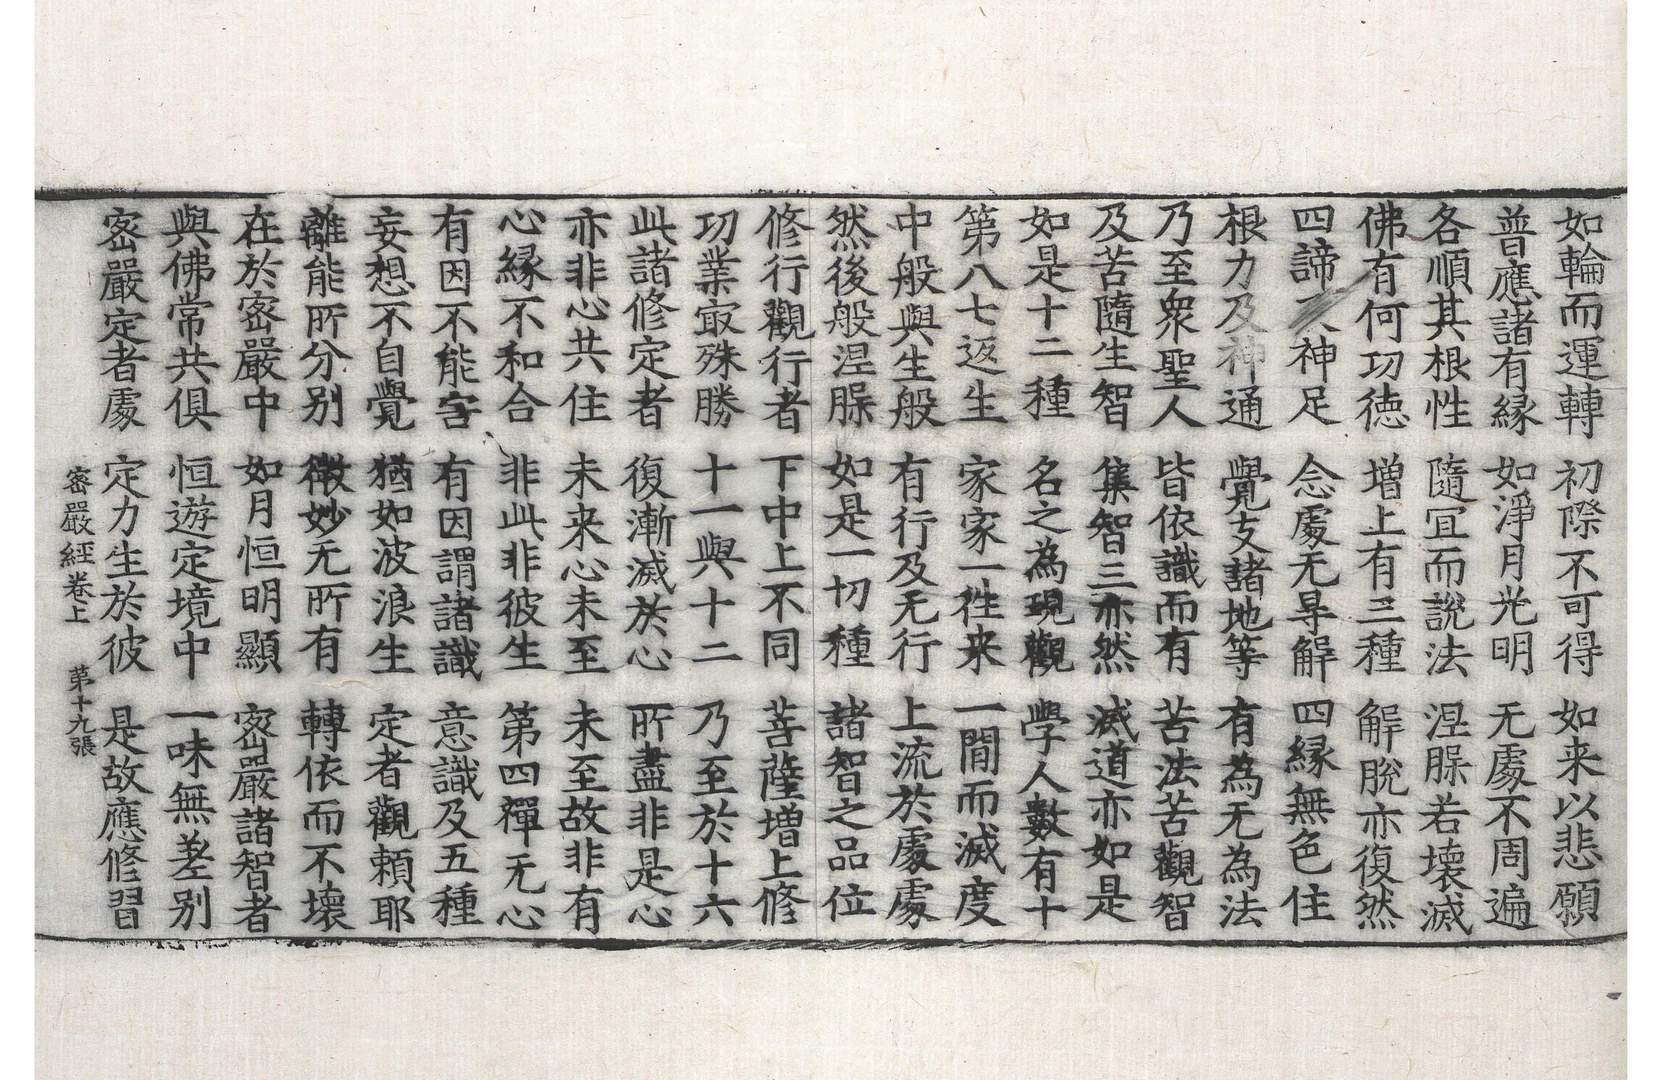 如輪而運轉 初際不可得 如来以悲願
普應諸有縁 如淨月光明 无處不周遍
各順其根性 隨冝而說法 涅膎若壞滅
佛有何功徳 増上有三種 解脫亦復然
四諦 神足 念處无㝵解 四縁無色住
根力及神通 覺支諸地等 有為无為法
乃至衆聖人 皆依識而有 苦法苦觀智
及苦隨生智 集智三亦然 滅道亦如是
如是十二種 名之為現觀 學人數有十
第八七返生 家家一徃来 一閒而滅度
中般與生般 有行及无行 上流於處處
然後般涅膎 如是一切種 諸智之品位
修行觀行者 下中上不同 菩薩増上修
功業㝡殊勝 十一與十二 乃至於十六
此諸修定者 復漸滅於心 所盡非是心
亦非心共住 未来心未至 未至故非有
心縁不和合 非此非彼生 第四禪无心
有因不能害 有因謂諸識 意識及五種
妄想不自覺 猶如波浪生 定者觀頼耶
離能所分别 微妙无所有 轉依而不壞
在於密嚴中 如月恒明顯 密嚴諸智者
與佛常共俱 恒遊定境中 一味無差别
密嚴定者處 定力生於彼 是故應修習
密嚴經卷上 第十九張